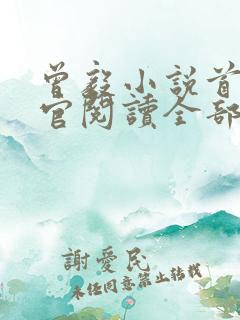 曾毅小说首
官阅讀全部
謝愛民
未经同意禁止转载